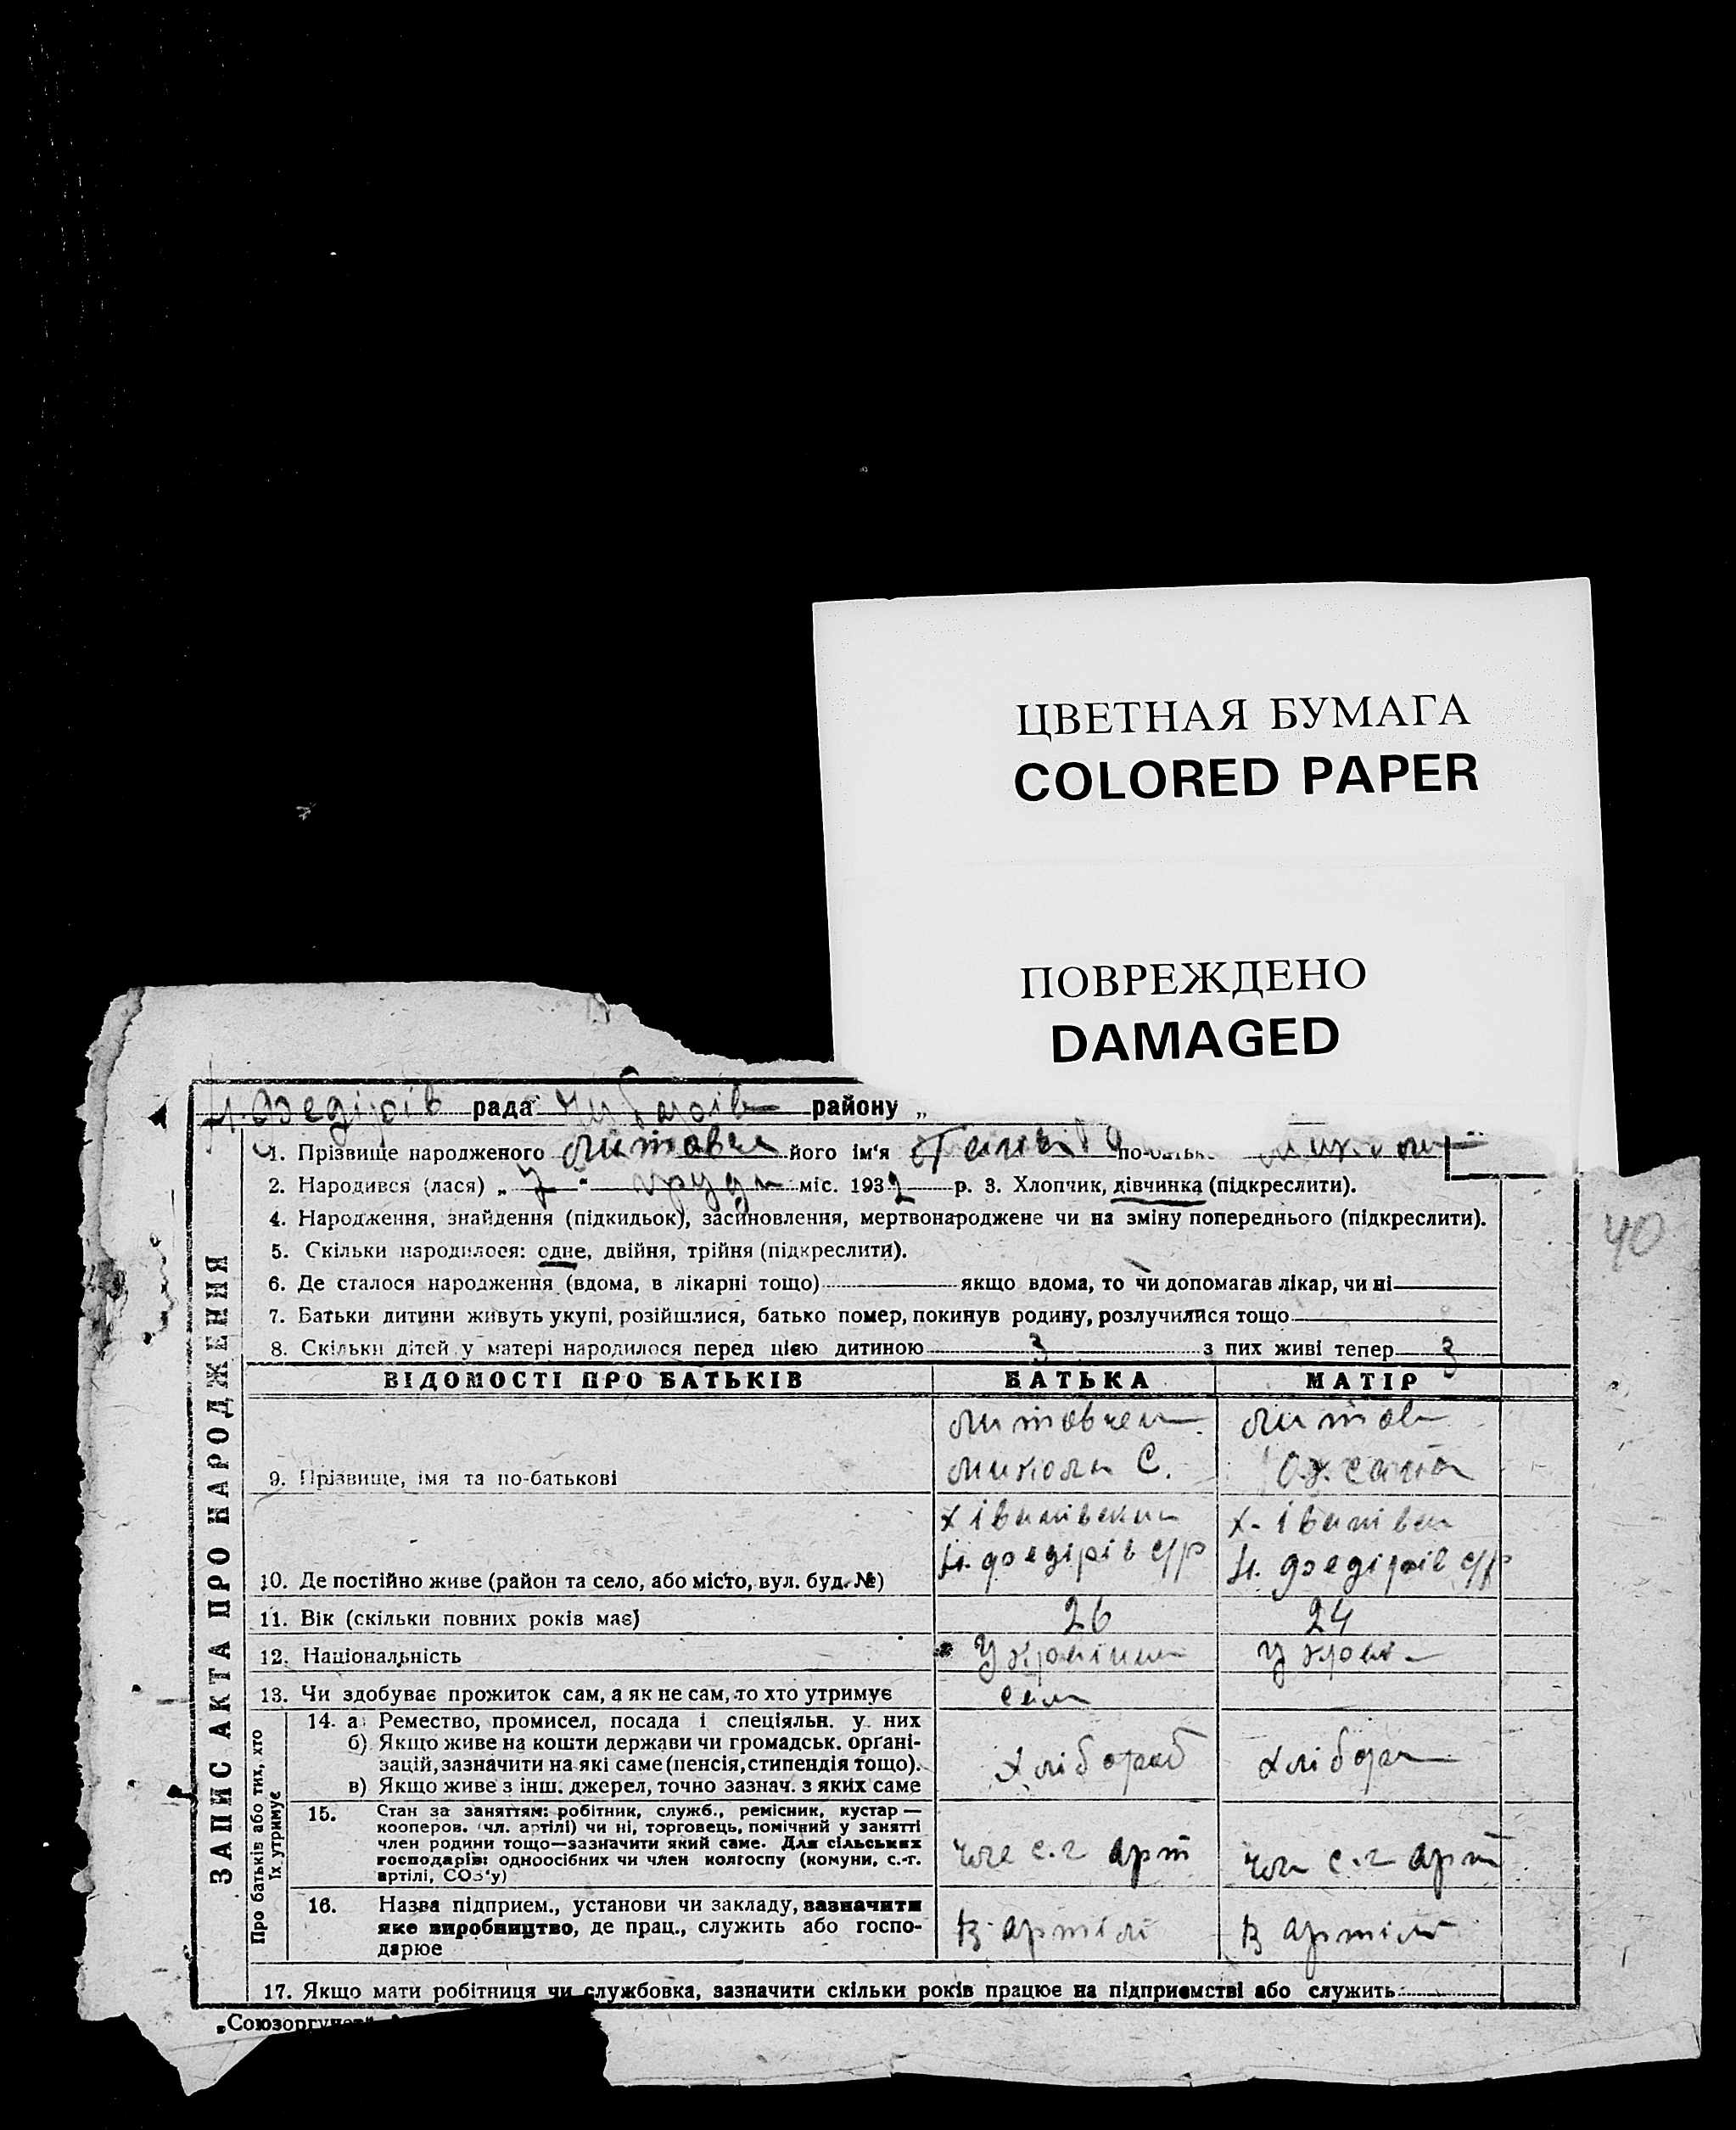 ЦВЕТНАЯ БУМАГА
COLORED PAPER
ПОВРЕЖДЕНО
DAMAGED
Н. Федірів рада району „
1. Прізвище народженого Литовч його ім'я по-батьк. Микол
2. Народився (лася) „ 7 “ грудн міс. 1932 р. 3. Хлопчик, дівчинка (підкреслити).
40
4. Народження, знайдення (підкидьок), засиновлення, мертвонароджене чи на зміну попереднього (підкреслити).
5. Скільки народилося: одне, двійня, трійня (підкреслити).
6. Де сталося народження (вдома, в лікарні тощо) якщо вдома, то чи допомагав лікар, чи ні
7. Батьки дитини живуть укупі, розійшлися, батько помер, покинув родину, розлучилися тощо
8. Скільки дітей у матері народилося перед цією дитиною 3 з них живі тепер 3
ЗАПИС АКТА ПРО НАРОДЖЕННЯ
ВІДОМОСТІ ПРО БАТЬКІВ БАТЬКА МАТІР
Литовчен Литов
9. Прізвище, імя та по-батькові Микола С. Оксана
х Іванівськ х. Іванівсь
Н. Федірів с/р Н. Федірів с/р
10. Де постійно живе (район та село, або місто, вул. буд. №)
11. Вік (скільки повних років має) 26 24
12. Національність Українц Украї
13. Чи здобуває прожиток сам, а як не сам, то хто утримує сам
Про батьків або тих, хто
їх утримує
14. а) Ремество, промисел, посада і спеціяльн. у них
б) Якщо живе на кошти держави чи громадськ. органі-
зацій, зазначити на які саме (пенсія, стипендія тощо). хлібороб хлібор
в) Якщо живе з інш. джерел, точно зазнач. з яких саме
15. Стан за заняттям: робітник, служб., ремісник, кустар —
кооперов. (чл. артілі) чи ні, торговець, помічний у занятті
член родини тощо—зазначити який саме. Для сільських
господарів: одноосібних чи член колгоспу (комуни, с.-г. чле с.г арт чле с.г арт
артілі, СОЗ'у)
16. Назва підприєм., установи чи закладу, зазначити
яке виробництво, де прац., служить або госпо- В артілі В артілі
дарює
17. Якщо мати робітниця чи службовка, зазначити скільки років працює на підприємстві або служить